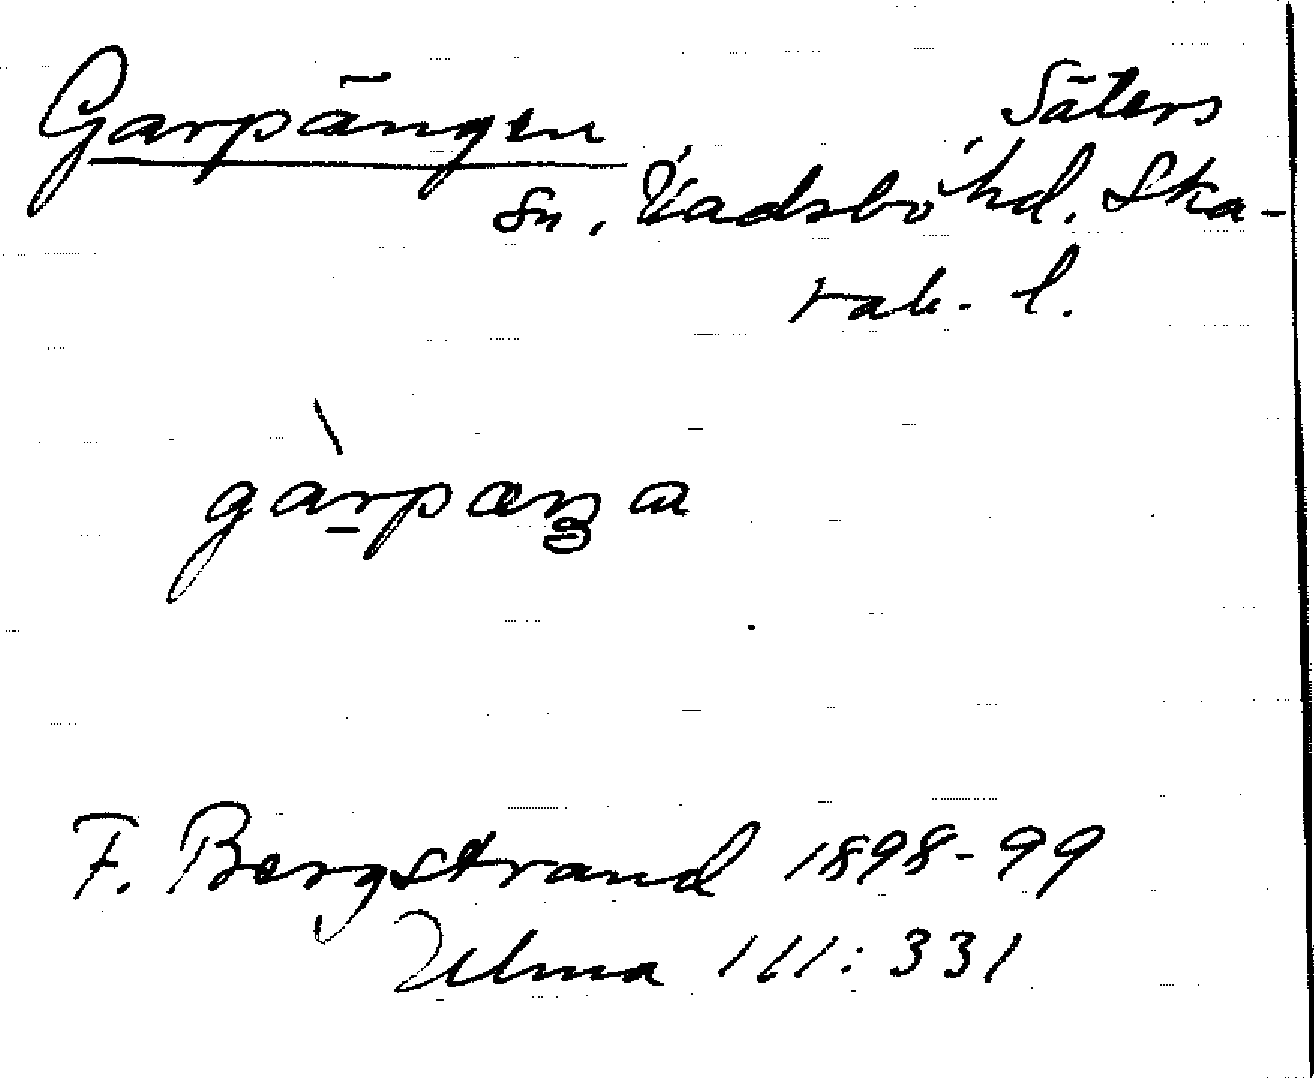 Garpängen Säters
sn. Vadsbo hd. Ska-
rab. l.
gàrpæŋa
F. Bergstrand 1898-99
Ulma 111:331